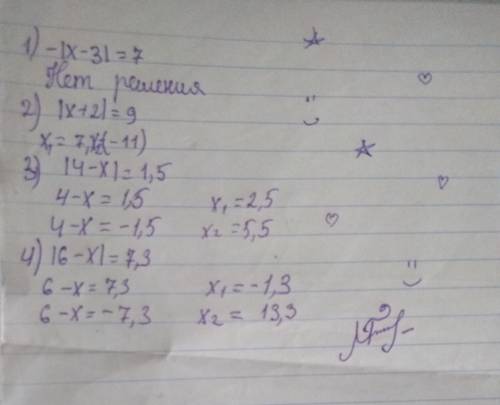 1) -|x-3|=7
Нет решения
2) |x+2|=9
x₁=7, x₂(-11)
3) |4-x|=1,5
4-x=1,5 x₁=2,5
4-x=-1,5 x₂=5,5
4) |6-x|=7,3
6-x=7,3 x₁=-1,3
6-x=-7,3 x₂=13,3